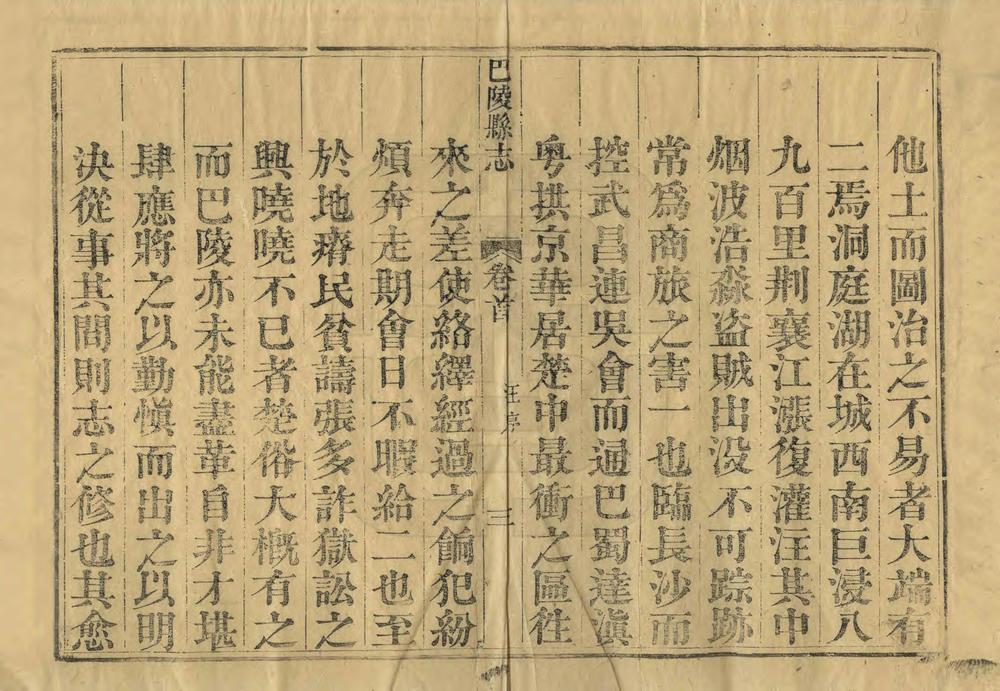 他土而圖治之不易者大端有
二焉洞庭湖在城西南巨浸八
九百里荆襄江漲復灌汪其中
烟波浩淼盗賊出没不可踪跡
常爲商旅之害一也臨長沙而
控武昌連吳會而通巴蜀達滇
粤拱京華居楚中最衝之區徃
巴陵縣志 卷首 汪序 三
來之差使絡繹經過之餉犯紛
煩奔走期會日不暇給二也至
於地瘠民貧譸張多詐獄訟之
興嘵嘵不已者楚俗大槪有之
而巴陵亦未能盡革自非才堪
肆應將之以勤愼而出之以明
決從事其間則志之修也其愈